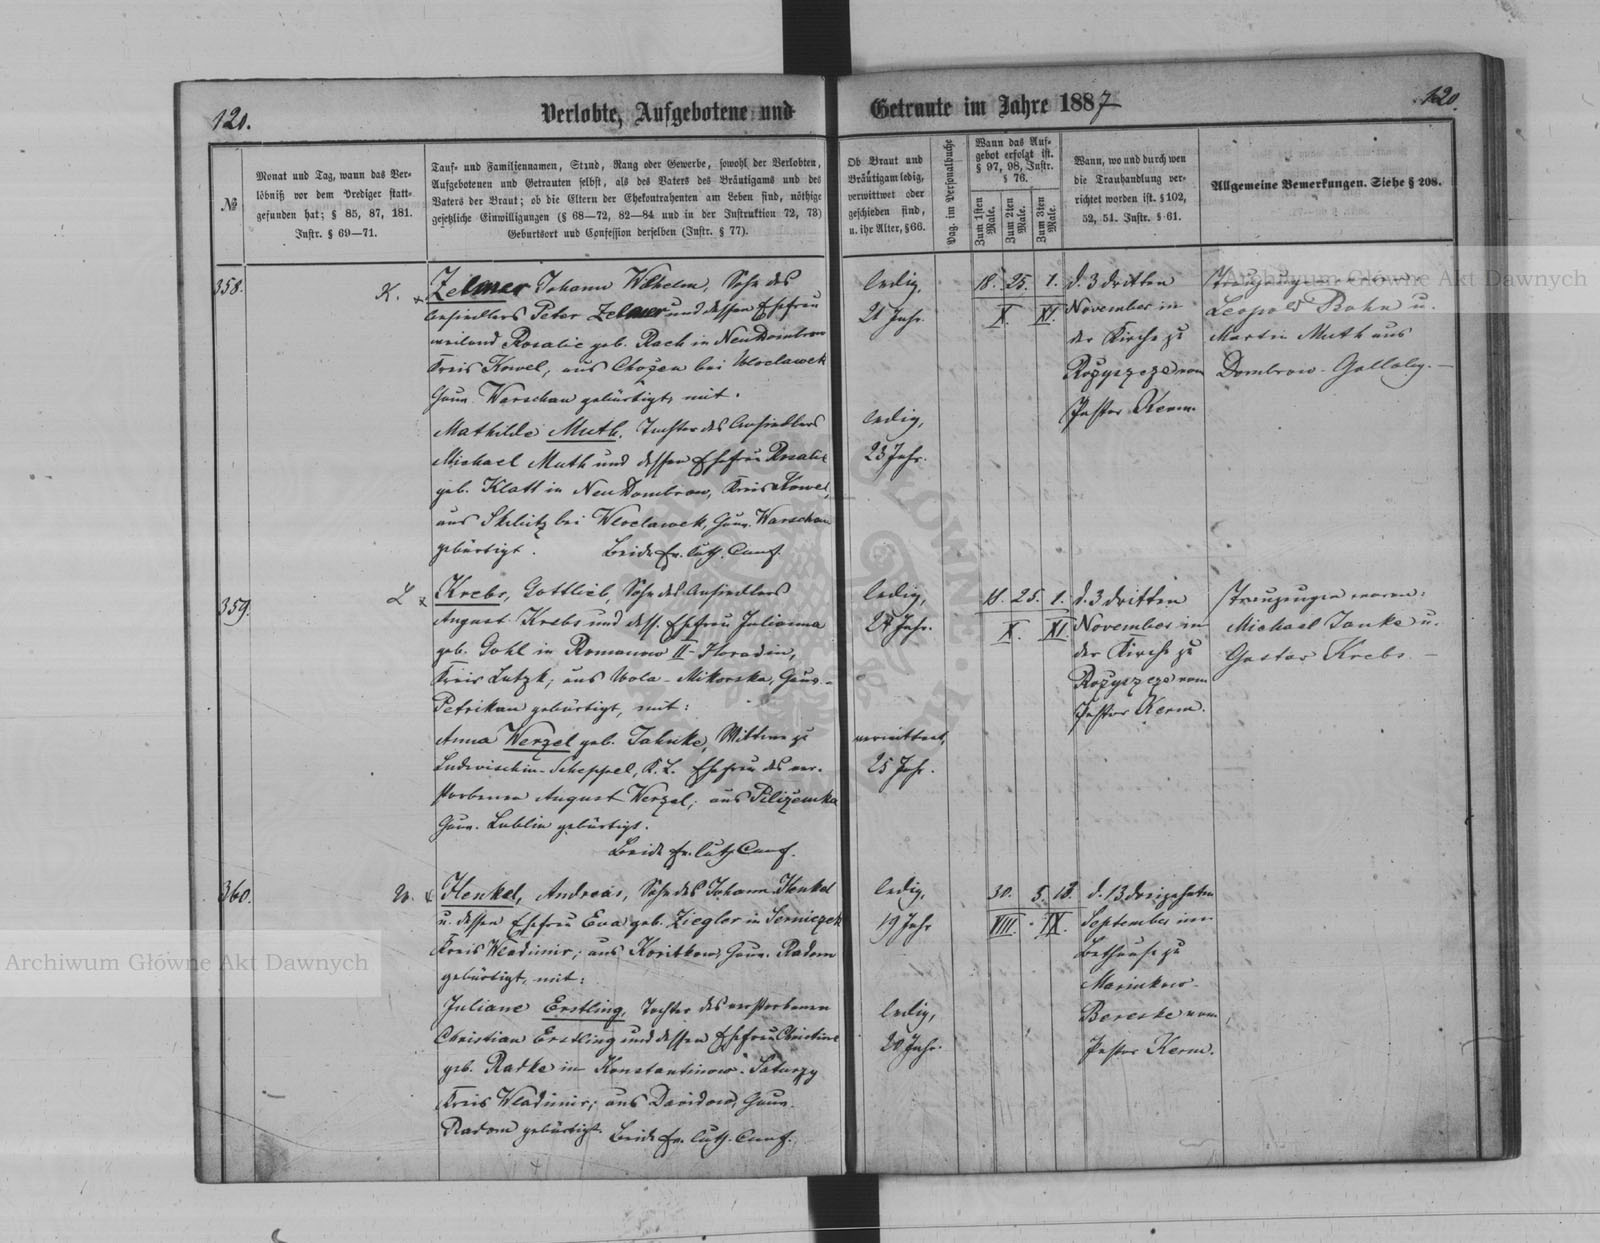 120.
Verlobte, Aufgebotene und
Getraute im Jahre 1887
120.
№
Monat und Tag, wann das Ver-
löbniß vor dem Prediger statt-
gefunden hat; § 85, 87, 181.
Instr. § 69—71.
Tauf- und Familiennamen, Stand, Rang oder Gewerbe, sowohl der Verlobten,
Aufgebotenen und Getrauten selbst, als des Vaters des Bräutigams und des
Vaters der Braut; ob die Eltern der Ehekontrahenten am Leben sind, nöthige
gesetzliche Einwilligungen (§ 68—72, 82—84 und in der Instruktion 72, 73)
Geburtsort und Confession derselben (Instr. § 77).
Ob Braut und
Bräutigam ledig,
verwittwet oder
geschieden sind,
u. ihr Alter, § 66.
Pag. im Personalbuche
Wann das Auf-
gebot erfolgt ist.
§ 97, 98, Instr.
§ 76.
Zum 1sten
Male.
Zum 2ten
Male.
Zum 3ten
Male.
Wann, wo und durch wen
die Trauhandlung ver-
richtet worden ist. § 102,
52, 51. Instr. § 61.
Allgemeine Bemerkungen. Siehe § 208.
358.
K.
Zelmer Johann Wilhelm, Sohn des
Ansiedlers Peter Zelmer und dessen Ehefrau
weiland Rosalie geb. Rech in Neu Dombrow
Kreis Kowel, aus Chozen bei Wloclawek
Gouv. Warschau gebürtig, mit.
Mathilde Muth, Tochter des Ansiedlers
Michael Muth und dessen Ehefrau Rosalie
geb. Klatt in Neu Dombrow, Kreis Kowel,
aus bei Wloclawek, Gouv. Warschau
gebürtigt. Beide Ev. Luth. Conf.
ledig,
21 Jahr.
ledig,
23 Jahr.
18. 25. 1.
X. XI.
d. 3 dritten
November in
der Kirche zu
Rozyszcze vom
Pastor Kerm.
Leopold Bohn u.
Martin Muth aus
Dombrow.
359.
L
Krebs, Gottlieb, Sohn des Ansiedlers
August Krebs und dess. Ehefrau Julianna
geb. Gohl in Romanow II - Horodin,
Kreis Lutzk; aus Wola - Mikorska, Gouv.
Petrikau gebürtigt, mit:
Anna Wenzel geb. Jahnke, Wittwe zu
Ludwischin - Scheppel, K. L. Ehefrau des ver-
storbenen August Wenzel; aus
Gouv. Lublin gebürtigt.
Beide Ev. Luth. Conf.
ledig,
24 Jahr.
verwittwet,
25 Jahr.
18. 25. 1.
X. XI.
d. 3 dritten
November in
der Kirche zu
Rozyszcze vom
Pastor Kerm.
Trauzeugen waren:
Michael Janke u.
Gustav Krebs. —
360.
W.
Henkel, Andreas, Sohn des Johann Henkel
u. dessen Ehefrau Eva geb. Ziegler in Serniczek
Kreis Wladimir; aus Koritkow, Gouv. Radom
gebürtigt, mit:
Juliane Erstling, Tochter des verstorbenen
Christian Erstling und dessen Ehefrau Christine
geb. Radke in Konstantinow - Saturzy
Kreis Wladimir; aus Davidow, Gouv.
Radom gebürtigt. Beide Ev. Luth. Conf.
ledig,
19 Jahr
ledig,
20 Jahr.
30. 5. 13.
VIII. IX.
d. 13 dreizehnten
September im
Bethause zu
Marinkow
Bereske vom
Pastor Kerm.
Archiwum Główne Akt Dawnych
Archiwum Główne Akt Dawnych